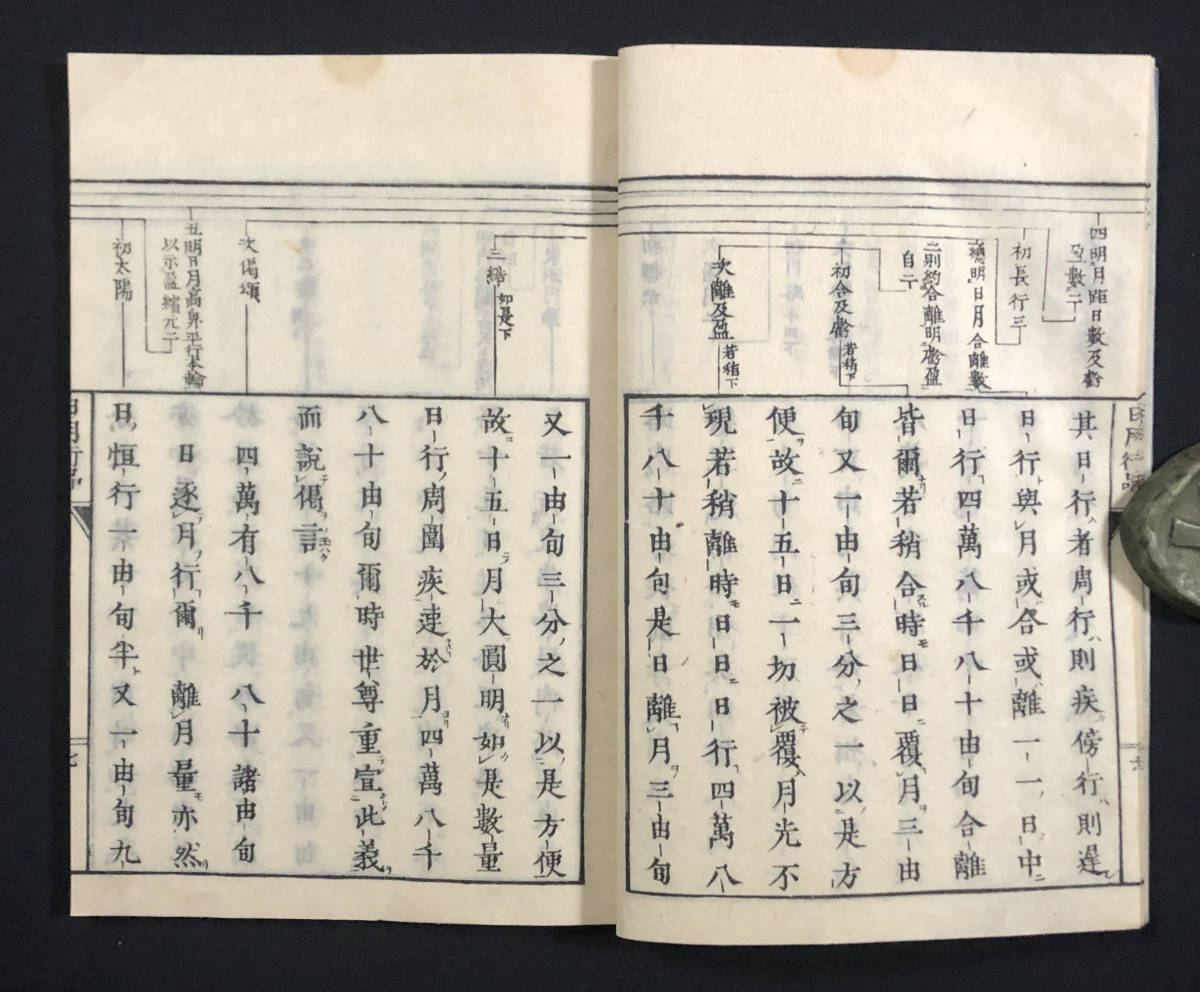 四明月距日數及虧
盈數二
初長行三
總明日月合離數
二則約合離明虧盈
自二
初合及虧
若稍下
次離及盈
若稍下
其日行者周行則疾傍行則遲
日行與月或合或離一一日中
日行四萬八千八十由旬合離
皆爾若稍合時日日覆月三由
旬又一由旬三分之一以是方
便故十五日一切被覆月光不
現若稍離時日日日行四萬八
千八十由旬是日離月三由旬
日月行品
三締
如是下
次偈頌
五明日月高卑平行本輪
以示盈縮元二
初太陽
又一由旬三分之一以是方便
故十五日月大圓明如是數量
日行周圍疾速於月四萬八千
八十由旬爾時世尊重宣此義
而說偈言
四萬有八千 八十諸由旬
日逐月行爾 離月量亦然
日恒行一由旬半又一由旬九